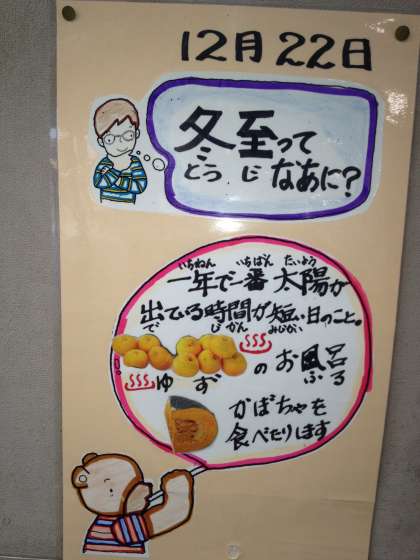 12月22日
冬至って
とう じ なあに?
いちねん いちばん たいよう
一年で一番 太陽が
出ている時間が短い日のこと。
で じかん みじかい
ゆず のお風呂
ふろ
かぼちゃを
食べたりします